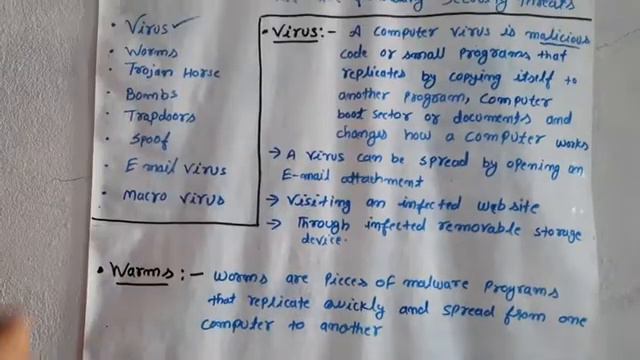 Security Threats
• Virus ✓
• Worms
• Trojan Horse
• Bombs
• Trapdoors
• Spoof
• E-mail Virus
• Macro Virus
• Virus:- A computer virus is malicious
code or small programs that
replicates by copying itself to
another program, computer
boot sector or documents and
changes how a computer works
→ A virus can be spread by opening an
E-mail attachment
→ Visiting an infected website
→ Through infected removable storage
device.
• Warms:- Worms are pieces of malware programs
that replicate quickly and spread from one
computer to another